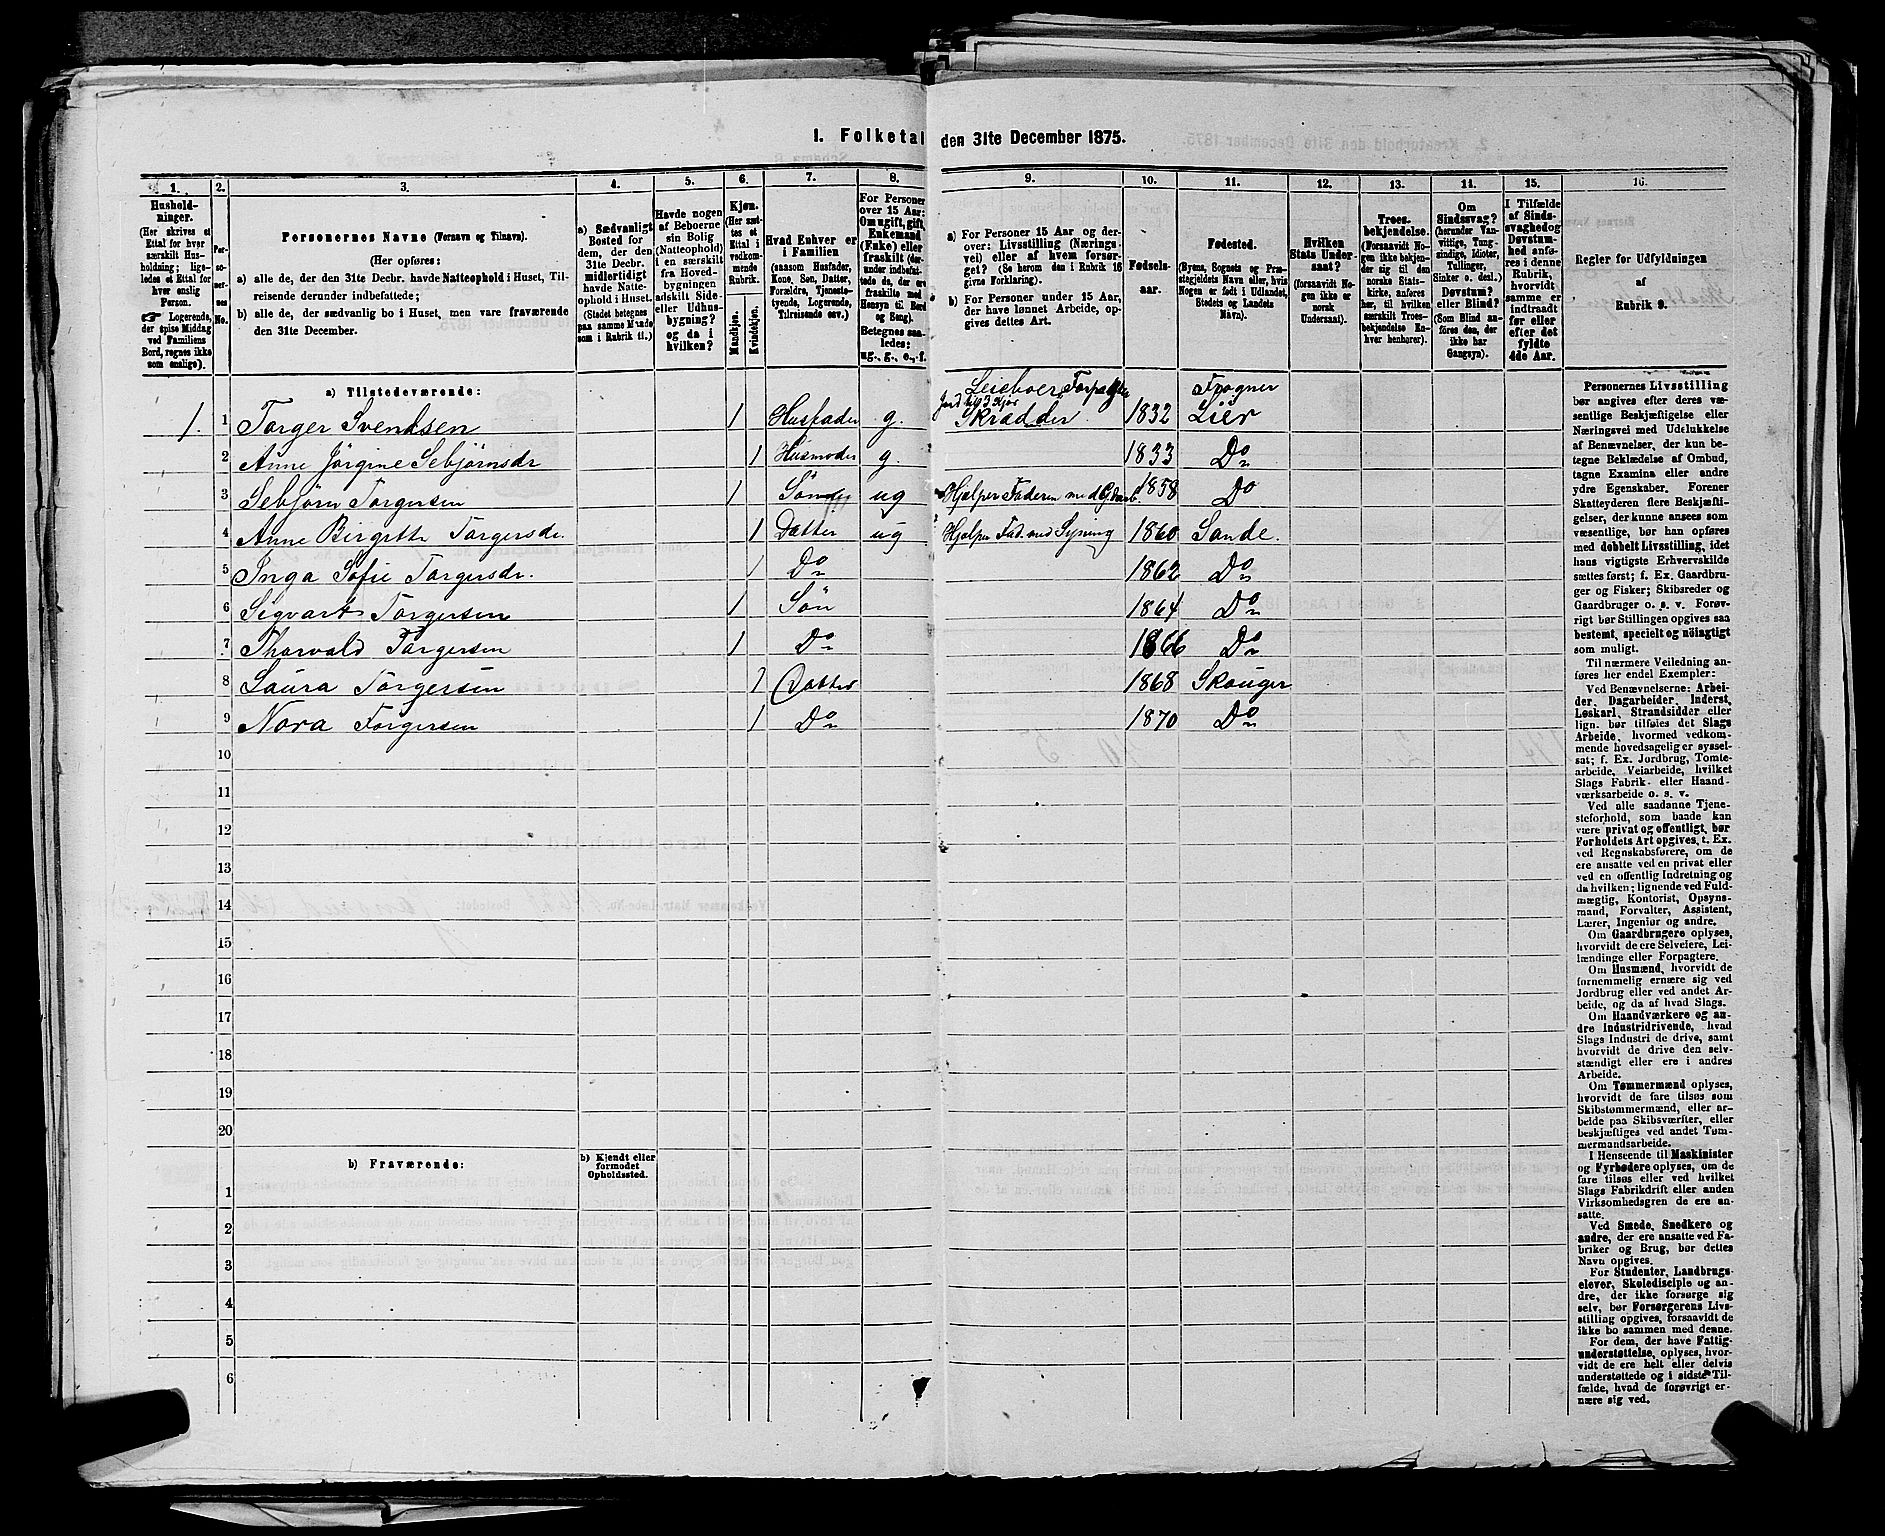 1. Folketal den 31te December 1875.
1. 2. 3. 4. 5. 6. 7. 8. 9. 10. 11. 12. 13. 14. 15. 16.
Hushold-
ninger.
(Her skrives et
Ettal for hver
særskilt Hus-
holdning; lige-
ledes et Ettal for
hver enslig
Person.
☞ Logerende,
der spise Middag
ved Familiens
Bord, regnes ikke
som enslige).
Per-
so-
ner-
nes
No.
Personernes Navne (Fornavn og Tilnavn).
(Her opføres:
a) alle de, der den 31te Decbr. havde Natteophold i Huset, Til-
reisende derunder indbefattede;
b) alle de, der sædvanlig bo i Huset, men vare fraværende
den 31te December.
a) Sædvanligt
Bosted for
dem, der den
31te Decbr.
midlertidigt
havde Natte-
ophold i Huset.
(Stedet betegnes
paa samme Maade
som i Rubrik 11.)
Havde nogen
af Beboerne
sin Bolig
(Natteophold)
i en særskilt
fra Hoved-
bygningen
adskilt Side-
eller Udhus-
bygning?
og da i
hvilken?
Kjøn.
(Her sæt-
tes et
Ettal i
vedkom-
mende
Rubrik.
Mandkjøn.
Kvindekjøn.
Hvad Enhver er
i Familien
(saasom Husfader,
Kone, Søn, Datter,
Forældre, Tjeneste-
tyende, Logerende,
Tilreisende osv.)
For Personer
over 15 Aar:
Om ugift, gift,
Enkemand
(Enke) eller
fraskilt (der-
under indbefat-
tede de, der ere
fraskilte med
Hensyn til Bord
og Seng).
Betegnes saa-
ledes:
ug., g., e., f.
a) For Personer 15 Aar og der-
over: Livsstilling (Nærings-
vei) eller af hvem forsør-
get? (Se herom den i Rubrik 16
givne Forklaring).
b) For Personer under 15 Aar,
der have lønnet Arbeide, op-
gives dettes Art.
Fødsels-
aar.
Fødested.
(Byens, Sognets og Præ-
stegjeldets Navn eller, hvis
Nogen er født i Udlandet,
Stedets og Landets
Navn).
Hvilken
Stats Under-
saat?
(forsaavidt No-
gen ikke er
norsk
Undersaat).
Troes-
bekjendelse.
(Forsaavidt No-
gen ikke bekjen-
der sig til den
norske Stats-
kirke, anføres
her, til hvilken
særskilt Troes-
bekjendelse En-
hver henhører).
Om
Sindssvag?
(herunder Van-
vittige, Tung-
sindige, Idioter,
Tullinger,
Sinker o. desl.)
Døvstum?
eller Blind?
(Som Blind an-
føres den, der
ikke har
Gangsyn).
I Tilfælde
af Sinds-
svaghed og
Døvstum-
hed anfø-
res i denne
Rubrik,
hvorvidt
samme er
indtraadt
før eller
efter det
fyldte
4de Aar.
Regler for Udfyldningen
af
Rubrik 9.
a) Tilstedeværende:
Leieboer Forpagter Frogner
Jord til 3 Kjør
1. 1 Torger Svendsen 1 Husfader g. Skrædder 1832 Lier
2 Anne Jørgine Sebjørnsdr 1 Husmoder g. 1833 Do
3 Sebjørn Torgersen 1 Søn ug Hjelper Faderen med 1858 Do
4 Anne Birgitte Torgersdr. 1 Datter ug Hjelper Fad. med Syning 1860 Sande.
5 Inga Sofie Torgersdr. 1 Do 1862 Do
6 Sigvart Torgersen 1 Søn 1864 Do
7 Thorvald Torgersen 1 Do 1866 Do
8 Laura Torgersen 1 Datter 1868 Skouger
9 Nora Torgersen 1 Do 1870 Do
10
11
12
13
14
15
16
17
18
19
20
b) Fraværende:
b) Kjendt eller
formodet
Opholdssted.
1
2
3
4
5
6
Personernes Livsstilling
bør angives efter deres væ-
sentlige Beskjæftigelse eller
Næringsvei med Udelukkelse
af Benævnelser, der kun be-
tegne Beklædelse af Ombud,
tagne Examina eller andre
ydre Egenskaber. Forener
Skatteyderen flere Beskjæfti-
gelser, der kunne ansees som
væsentlige, bør han opføres
med dobbelt Livsstilling, idet
hans vigtigste Erhvervskilde
sættes først; f. Ex. Gaardbru-
ger og Fisker; Skibsreder og
Gaardbruger o. s. v. Forøv-
rigt bør Stillingen opgives saa
bestemt, specielt og nöiagtigt
som muligt.
Til nærmere Veiledning an-
føres her endel Exempler:
Ved Benævnelserne: Arbei-
der, Dagarbeider, Inderst,
Løskarl, Strandsidder eller
lign. bør tilføies det Slags
Arbeide, hvormed vedkom-
mende hovedsagelig er syssel-
sat; f. Ex. Jordbrug, Tomte-
arbeide, Veiarbeide, hvilket
Slags Fabrik- eller Haand-
værksarbeide o. s. v.
Ved alle saadanne Tjene-
steforhold, som baade kan
være privat og offentligt, bør
Forholdets Art opgives, t. Ex.
ved Regnskabsførere, om de
ere ansatte ved en privat eller
ved en offentlig Indretning og
da hvilken; lignende ved Fuld-
mægtig, Kontorist, Opsyns-
mand, Forvalter, Assistent,
Lærer, Ingeniør og andre.
Om Gaardbrugere oplyses,
hvorvidt de ere Selveiere, Lei-
lændinge eller Forpagtere.
Om Husmænd, hvorvidt de
fornemmelig ernære sig ved
Jordbrug eller ved andet Ar-
beide, og da af hvad Slags.
Om Haandværkere og an-
dre Industridrivende, hvad
Slags Industri de drive, samt
hvorvidt de drive den selv-
stændigt eller ere i andres
Arbeide.
Om Tømmermænd oplyses,
hvorvidt de fare tilsøs som
Skibstømmermænd, eller ar-
beide paa Skibsværfter, eller
beskjæftiges ved andet Tøm-
mermandsarbeide.
I Henseende til Maskinister
og Fyrbødere oplyses, om de
fare tilsøs eller ved hvilket
Slags Fabrikdrift eller anden
Virksomhedsgren de ere an-
satte.
Ved Smede, Snedkere og
andre, der ere ansatte ved Fa-
briker og Brug, bør dettes
Navn opgives.
For Studenter, Landbrugs-
elever, Skoledisciple og an-
dre, der ikke forsørge sig
selv, bør Forsørgerens Livs-
stilling opgives, forsaavidt de
ikke bo sammen med denne.
For dem, der have Fattig-
understøttelse, oplyses, hvor-
vidt de ere helt eller delvis
understøttede og i sidste Til-
fælde, hvad de forøvrigt er-
nære sig ved.